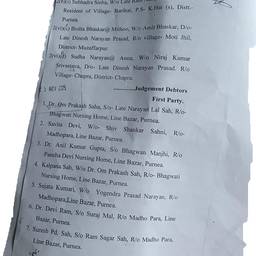 Subhadra Sinha, W/o Late
Resident of Village- Barihat, P.S. K.Hat (s), Distt.-
Purnea.
Binita Bhaskar @ Mithoo, W/o Amit Bhaskar, D/o-
Late Dinesh Narayan Prasad, R/o village- Moti Jhil,
District- Muzaffarpur
Sudha Narayan @ Annu, W/o Niraj Kumar
Srivastava, D/o- Late Dinesh Narayan Prasad, R/o
Village- Chapra, District- Chapra.
Judgement Debtors
First Party.
1. Dr. Om Prakash Saha, S/o- Late Narayan Lal Sah, R/o-
Bhagwati Nursing Home, Line Bazar, Purnea.
2. Savita Devi, W/o- Shiv Shankar Sahni, R/o-
Madhopara, Line Bazar, Purnea.
3. Dr. Anil Kumar Gupta, S/o Bhagwan Manjhi, R/o
Nursing Home, Line Bazar, Purnea.
4. Kalpana Sah, W/o Dr. Om Prakash Sah, R/o- Bhagwati
Nursing Home, Line Bazar, Purnea.
5. Sujata Kumari, W/o Yogendra Prasad Narayan, R/o
Madhopara, Line Bazar, Purnea.
6. Dr. Devi Ram, S/o Suraj Mul, R/o Madho Para, Line
Bazar, Purnea.
7. Suresh Pd. Sah, S/o Ram Sagar Sah, R/o Madho Para,
Line Bazar, Purnea.